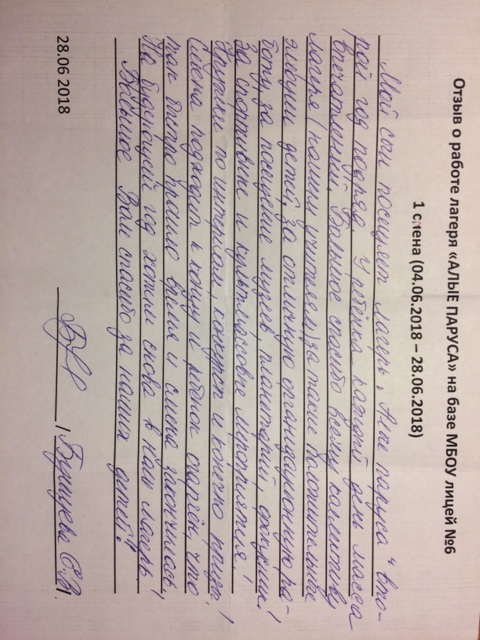 Отзыв о работе лагеря «АЛЫЕ ПАРУСА» на базе МБОУ лицей №6
1 смена (04.06.2018 – 28.06.2018)
Мой сын посещает лагерь „ Алые паруса “ вто-
рой год подряд. У ребёнка каждый день масса
впечатлений. Большое спасибо всему коллективу
лагеря (нашим учителям) за такие положительные
эмоции детей, за отличную организационную ра-
боту, за посещение музеев, планетарий,
за спортивные и культмассовые мероприятия,
кружки по интересам, конкурсы и конечно призы!
Смена подходит к концу и ребёнок что
так быстро прошло время и смена закончилась,
На будующий год хотим снова в Ваш лагерь
Большое Вам спасибо за наших детей!
28.06 2018 /